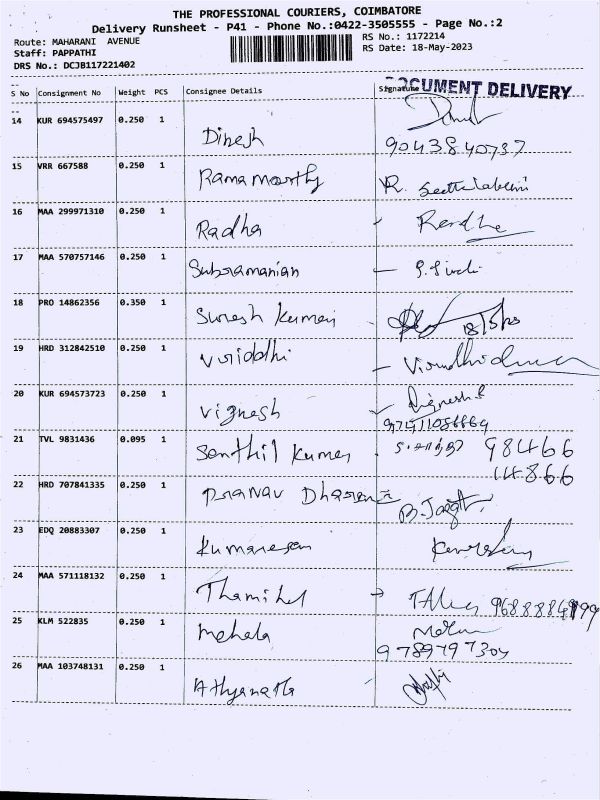 THE PROFESSIONAL COURIERS, COIMBATORE
Delivery Runsheet - P41 - Phone No.:0422-3505555 - Page No.:2
Route: MAHARANI AVENUE RS No.: 1172214
Staff: PAPPATHI RS Date: 18-May-2023
DRS No.: DCJB117221402
DOCUMENT DELIVERY
S No Consignment No Weight PCS Consignee Details Signature
14 KUR 694575497 0.250 1
Dinesh 90438 40737
15 VRR 667588 0.250 1
Rama moorthy
16 MAA 299971310 0.250 1
Radha
17 MAA 570757146 0.250 1
Subramanian
18 PRO 14862356 0.350 1
Suresh Kumar 18/5
19 HRD 312842510 0.250 1
Viriddhi
20 KUR 694573723 0.250 1
Vignesh Vignesh
21 TVL 9831436 0.095 1
Senthil Kumar 98466
14866
22 HRD 707841335 0.250 1
Pranav
23 EDQ 20883307 0.250 1
Kumaresan
24 MAA 571118132 0.250 1
25 KLM 522835 0.250 1
Mehala
9789797304
26 MAA 103748131 0.250 1